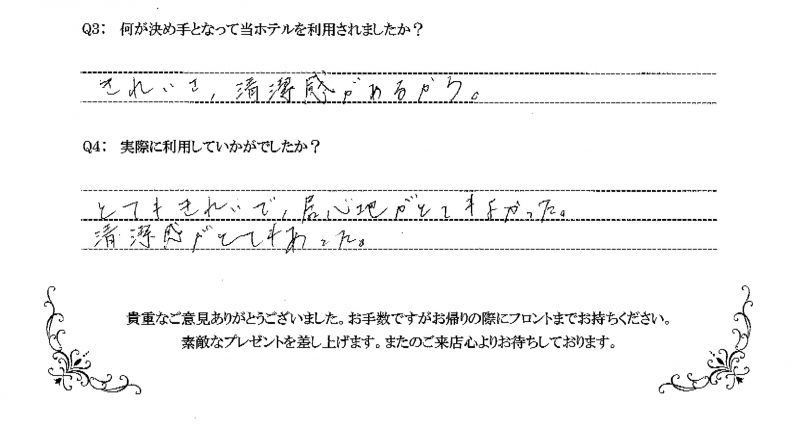 Q3： 何が決め手となって当ホテルを利用されましたか？
きれいさ，清潔感があるから。
Q4： 実際に利用していかがでしたか？
とてもきれいで，居心地がとてもよかった。
清潔感がとてもあった。
貴重なご意見ありがとうございました。お手数ですがお帰りの際にフロントまでお持ちください。
素敵なプレゼントを差し上げます。またのご来店心よりお待ちしております。